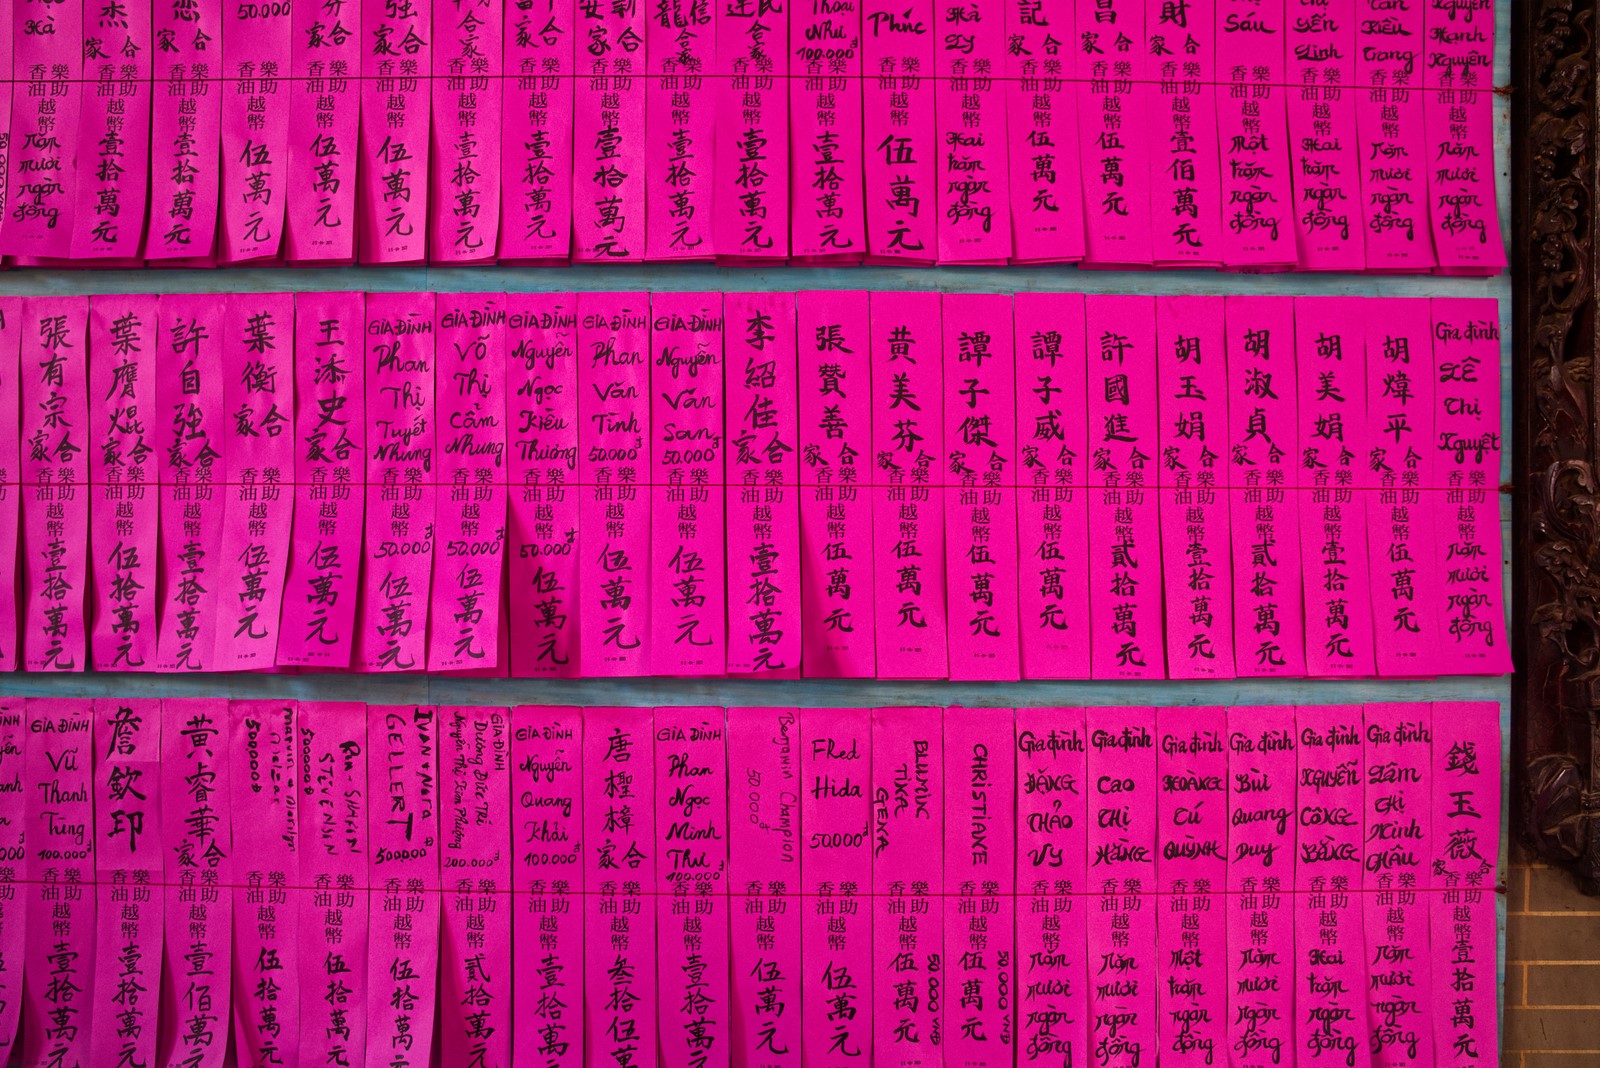 Hà
香樂
油助
越幣
Năm
mươi
ngàn
đồng
杰
合家
樂助香油
越幣
壹拾萬元
戀
合家
樂助香油
越幣
壹拾萬元
50.000
樂助香油
越幣
伍萬元
芬
合家
樂助香油
越幣
伍萬元
強
合家
樂助香油
越幣
伍萬元
合家
樂助香油
越幣
壹拾萬元
合家
樂助香油
越幣
壹拾萬元
合家
樂助香油
越幣
壹拾萬元
龍信
合家
樂助香油
越幣
壹拾萬元
民
合家
樂助香油
越幣
壹拾萬元
Thoại
Như
100.000đ
樂助香油
越幣
壹拾萬元
Phúc
樂助香油
越幣
伍萬元
Hà
Ly
樂助香油
越幣
Hai
trăm
ngàn
đồng
記
合家
樂助香油
越幣
伍萬元
昌
合家
樂助香油
越幣
伍萬元
財
合家
樂助香油
越幣
壹佰萬元
Sáu
樂助香油
越幣
Một
trăm
ngàn
đồng
Yến
Linh
樂助香油
越幣
Hai
trăm
ngàn
đồng
Kiều
Trang
樂助香油
越幣
Năm
mươi
ngàn
đồng
Nguyễn
Hạnh
Nguyên
樂助香油
越幣
Năm
mươi
ngàn
đồng
張有宗
合家
樂助香油
越幣
壹拾萬元
葉膺焜
合家
樂助香油
越幣
伍拾萬元
許自強
合家
樂助香油
越幣
壹拾萬元
葉衡
合家
樂助香油
越幣
伍萬元
王添史
合家
樂助香油
越幣
伍萬元
GIA ĐÌNH
Phan
Thị
Tuyết
Nhung
樂助香油
越幣
50.000đ
伍萬元
GIA ĐÌNH
Võ
Thị
Cẩm
Nhung
樂助香油
越幣
50.000đ
伍萬元
GIA ĐÌNH
Nguyễn
Ngọc
Kiều
Thương
樂助香油
越幣
50.000đ
伍萬元
GIA ĐÌNH
Phan
Văn
Tình
50.000đ
樂助香油
越幣
伍萬元
GIA ĐÌNH
Nguyễn
Văn
San
50.000đ
樂助香油
越幣
伍萬元
李紹佳
合家
樂助香油
越幣
壹拾萬元
張贊善
合家
樂助香油
越幣
伍萬元
黄美芬
合家
樂助香油
越幣
伍萬元
譚子傑
合家
樂助香油
越幣
伍萬元
譚子威
合家
樂助香油
越幣
伍萬元
許國進
合家
樂助香油
越幣
貳拾萬元
胡玉娟
合家
樂助香油
越幣
壹拾萬元
胡淑貞
合家
樂助香油
越幣
貳拾萬元
胡美娟
合家
樂助香油
越幣
壹拾萬元
胡煒平
合家
樂助香油
越幣
伍萬元
Gia đình
LÊ
Thị
Nguyệt
樂助香油
越幣
Năm
mươi
ngàn
đồng
GIA ĐÌNH
Vũ
Thanh
Tùng
100.000đ
樂助香油
越幣
壹拾萬元
詹欽印
樂助香油
越幣
壹拾萬元
黄睿華
合家
樂助香油
越幣
壹佰萬元
500000đ
樂助香油
越幣
伍拾萬元
STEVENSON
500000đ
樂助香油
越幣
伍拾萬元
IVAN & Nora
GELLERT
500000đ
樂助香油
越幣
伍拾萬元
GIA ĐÌNH
Dương Đức Trí
Nguyễn Thị Kim Phượng
200.000đ
樂助香油
越幣
貳拾萬元
GIA ĐÌNH
Nguyễn
Quang
Khải
100.000đ
樂助香油
越幣
壹拾萬元
唐檉樟
合家
樂助香油
越幣
叁拾伍萬
GIA ĐÌNH
Phan
Ngọc
Minh
Thư
100.000đ
樂助香油
越幣
壹拾萬元
Benjamin Champion
50.000đ
樂助香油
越幣
伍萬元
FRed
Hida
50.000đ
樂助香油
越幣
伍萬元
TIKA
樂助香油
越幣
伍萬元
50 000 VNĐ
CHRISTIANE
樂助香油
越幣
伍萬元
50 000 VNĐ
Gia đình
ĐẶNG
THẢO
VY
樂助香油
越幣
Năm
mươi
ngàn
đồng
Gia đình
Cao
THỊ
HẰNG
樂助香油
越幣
Năm
mươi
ngàn
đồng
Gia đình
HOÀNG
Tú
QUỲNH
樂助香油
越幣
Một
trăm
ngàn
đồng
Gia đình
Bùi
Quang
Duy
樂助香油
越幣
Năm
mươi
ngàn
đồng
Gia đình
NGUYỄN
CÔNG
BẰNG
樂助香油
越幣
Hai
trăm
ngàn
đồng
Gia đình
Lâm
THỊ
Minh
CHÂU
樂助香油
越幣
Năm
mươi
ngàn
đồng
錢玉薇
合家
樂助香油
越幣
壹拾萬元